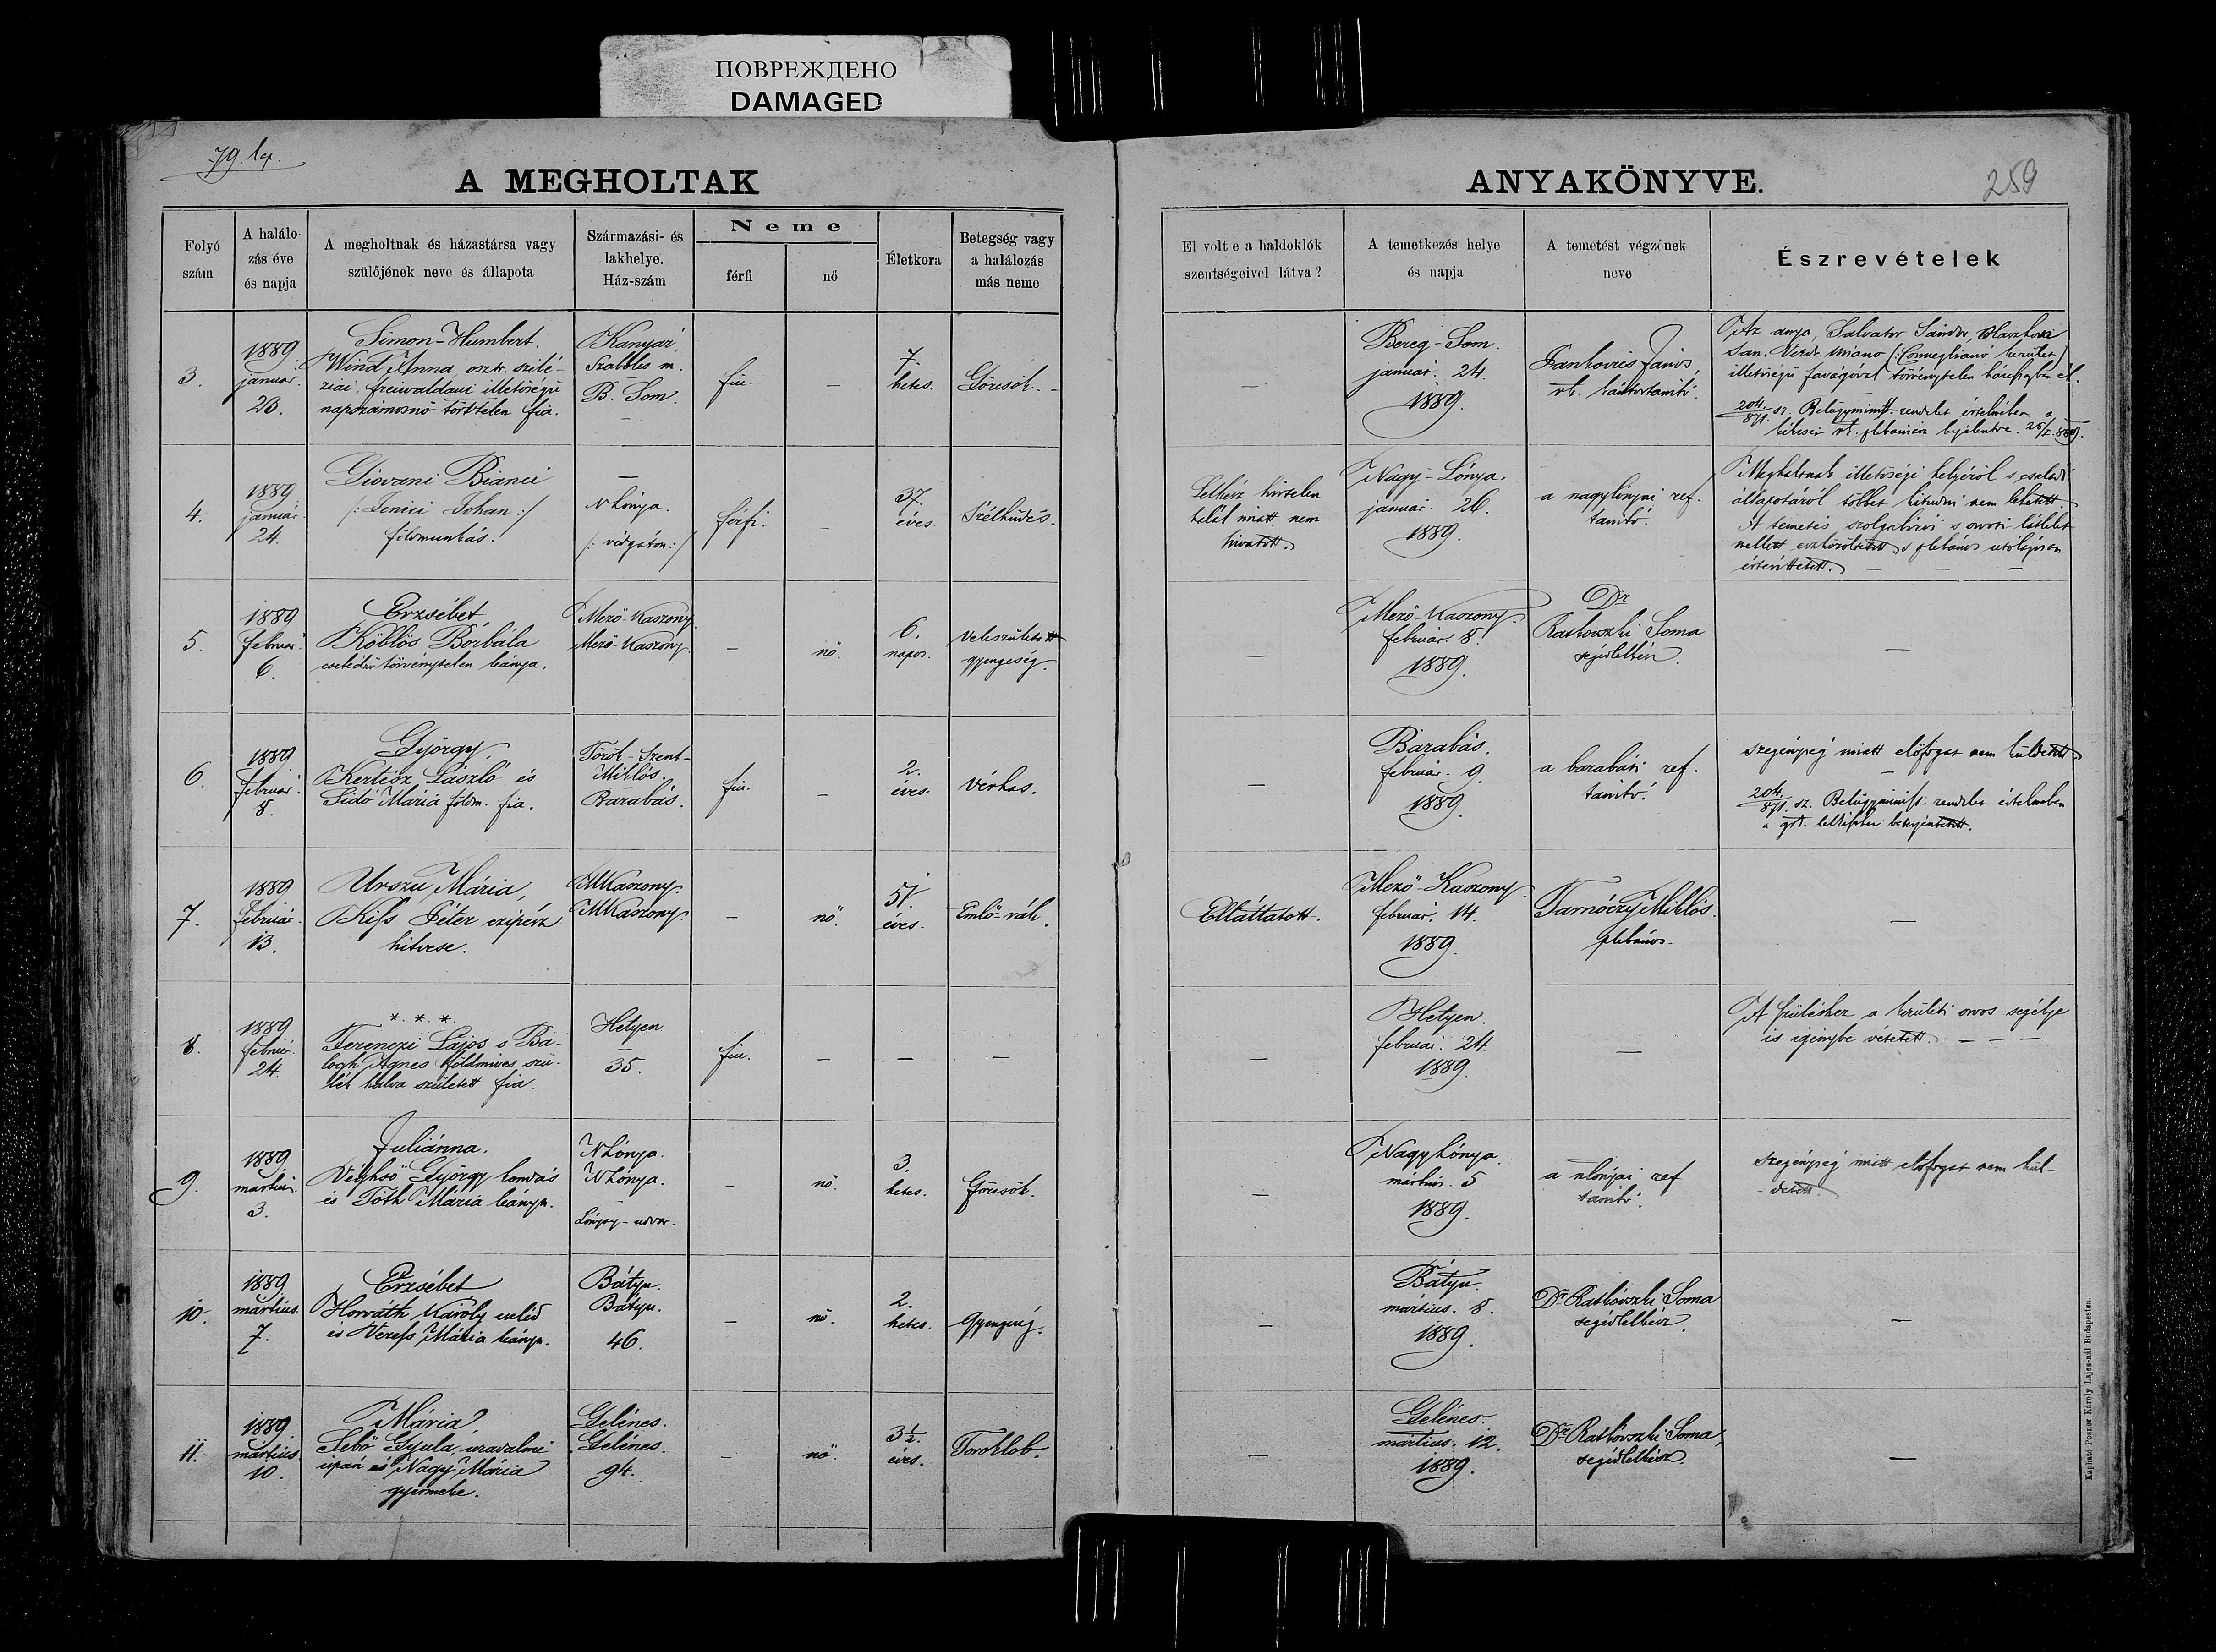 ПОВРЕЖДЕНО
DAMAGED
79. lap.
A MEGHOLTAK
ANYAKÖNYVE.
259
Folyó
szám
A halálo-
zás éve
és napja
A megholtnak és házastársa vagy
szülőjének neve és állapota
Származási- és
lakhelye.
Ház-szám
Neme
férfi
nő
Életkora
Betegség vagy
a halálozás
más neme
El volt e a haldoklók
szentségeivel látva?
A temetkezés helye
és napja
A temetést végzőnek
neve
Észrevételek
3.
1889
január.
23.
Simon-Humbert.
Wind Anna osztr. szilé-
ziai, freiwaldaui illetőségű
napszámosnő törvtelen fia.
Kanyár,
Szabolcs m.
B. Som.
fiu.
–
7.
hetes.
Görcsök.
—
Bereg-Som.
január. 24.
1889.
Jankovics János,
rk. kántortanító.
Az anya, Salvator Sándor, olaszhoni
San. Verde Miano (: Connegliano kerület)
illetőségű favágóval törvénytelen házasságban él.
204./871. sz. Belügyminist. rendelet értelmében a
rk. plebániára bejelentve. 25/I. 889.
4.
1889
január
24.
Giovani Bianci
/: Jenici Johan :/
földmunkás.
—
NLónya.
/: vidgáton :/
férfi.
–
37.
éves.
Szélhüdés.
Lelkész hirtelen
halál miatt nem
hivatott.
Nagy-Lónya.
január. 26.
1889.
a nagylónyai ref.
tanító.
Meghaltnak illetőségi helyéről s családi
állapotáról többet kitudni nem lehetett
A temetés szolgabírói s orvosi látlelet
mellett eszközöltetett s plebános utólagosan
értesíttetett.
5.
1889
február
6.
Erzsébet,
Köblös Borbála
cseléd törvénytelen leánya.
Mező-Kaszony
Mező-Kaszony
–
nő.
6.
napos.
Veleszületett
gyengeség.
—
Mező-Kaszony
február. 8.
1889.
Dr
Ratkovszki Soma
segédlelkész.
—
6.
1889
február.
8.
György,
Kertész László és
Sidó Mária földm. fia.
Török-Szent-
Miklós.
Barabás.
fiu.
–
2.
éves.
Vérhas.
—
Barabás.
február. 9.
1889.
a barabási ref.
tanító.
szegénység miatt előfogat nem küldetett
204./871. sz. Belügyminist. rendelet értelmében
a lelkészhez bejelentetett.
7.
1889
február.
13.
Urszu Mária,
Kiss Péter czipész
hitvese.
MKaszony.
MKaszony.
–
nő.
51.
éves.
Emlő-rák.
Elláttatott.
Mező-Kaszony
február. 14.
1889.
Tarnóczy Miklós.
plebános.
—
8.
1889
február.
24.
*. *. *.
Ferenczi Lajos s Ba-
logh Ágnes földmives szü-
lék halva született fia.
Hetyen
—
35.
fiu.
–
–
–
Hetyen.
február. 24.
1889.
—
A szüléshez a kerületi orvos segélye
is igénybe vétetett.
9.
1889
mártius.
3.
Juliánna.
Véghső György kondás
és Tóth Mária leánya.
NLónya.
NLónya.
–
Lónyay-udvar.
–
nő.
3.
hetes.
Görcsök.
—
NagyLónya.
mártius. 5.
1889.
a nlónyai ref
tanító.
szegénység miatt előfogat nem kül-
detett.
10.
1889
mártius.
7.
Erzsébet
Horváth Károly cseléd
és Veress Mária leánya.
Bátyu.
Bátyu.
46.
–
nő.
2.
hetes.
Gyengeség.
—
Bátyu.
mártius. 8.
1889.
Dr Ratkovszki Soma
segédlelkész.
—
11.
1889.
mártius
10.
Mária
Sebő Gyula, uradalmi
ispán és Nagy Mária
gyermeke.
Gelénes.
Gelénes.
94.
–
nő.
3½.
éves.
Toroklob.
—
Gelénes.
mártius. 12.
1889.
Dr Ratkovszki Soma,
segédlelkész.
—
Kapható Posner Károly Lajos-nál Budapesten.